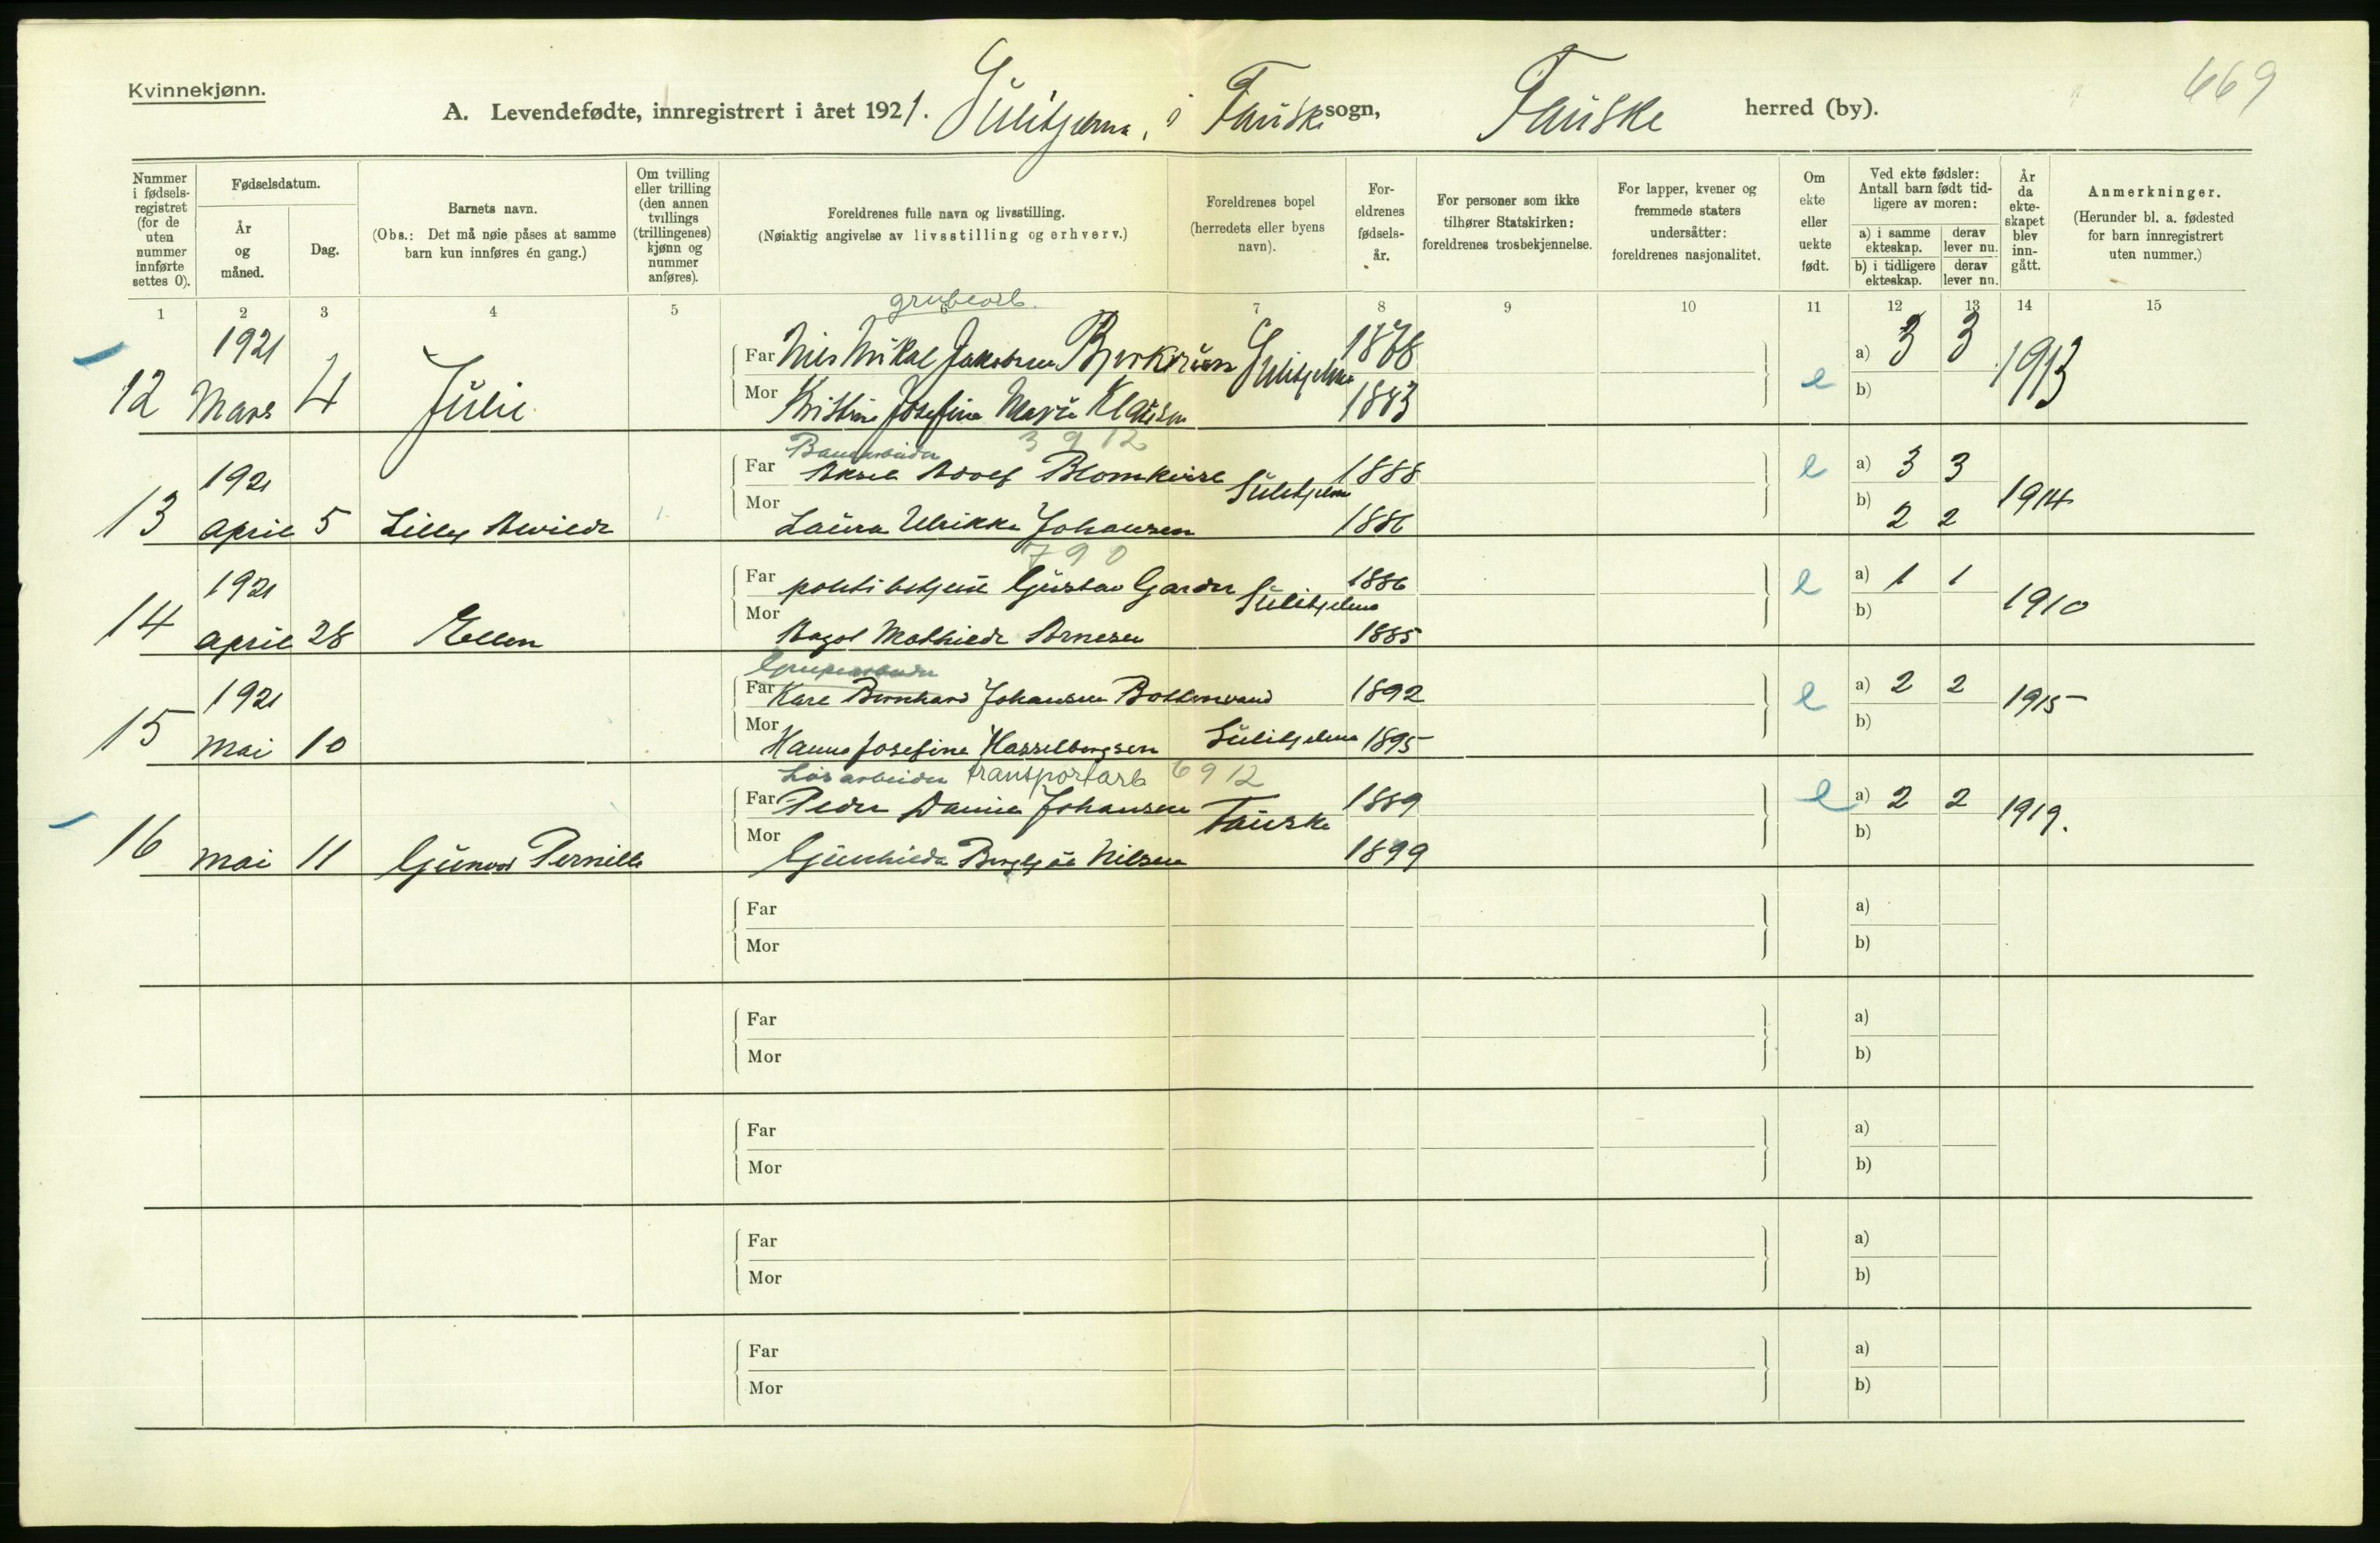 Kvinnekjønn.
669
A. Levendefødte, innregistrert i året 1921. Sulitjelma, i Fauske sogn, Fauske herred (by).
Nummer i fødsels-registret (for de uten nummer innførte settes 0).
Fødselsdatum.
År og måned.
Dag.
Barnets navn.
(Obs.: Det må nøie påses at samme barn kun innføres én gang.)
Om tvilling eller trilling (den annen tvillings (trillingenes) kjønn og nummer anføres).
Foreldrenes fulle navn og livsstilling.
(Nøiaktig angivelse av livsstilling og erhverv.)
Foreldrenes bopel (herredets eller byens navn).
For-eldrenes fødsels-år.
For personer som ikke tilhører Statskirken: foreldrenes trosbekjennelse.
For lapper, kvener og fremmede staters undersåtter: foreldrenes nasjonalitet.
Om ekte eller uekte født.
Ved ekte fødsler: Antall barn født tid-ligere av moren:
a) i samme ekteskap.
derav lever nu.
b) i tidligere ekteskap.
derav lever nu.
År da ekte-skapet blev inn-gått.
Anmerkninger.
(Herunder bl. a. fødested for barn innregistrert uten nummer.)
1 2 3 4 5 7 8 9 10 11 12 13 14 15
grubearb.
1921
Far Nils Nikal Jakobsen Sulitjelma 1878 a) 3 3
12 Mars 4 Julie e 1913
Mor Kristine Josefine Marie Klausen 1883 b)
3 9 12
1921
Far Aksel Adolf Blomkvist Sulitjelma 1888 e a) 3 3
13 April 5 Lilly Alvilde 1914
Mor Laura Ulrikke Johansen 1886 b) 2 2
7 9 0
1921
Far politibetjent Gustav Garder Sulitjelma 1886 e a) 1 1
14 April 28 Ellen 1910
Mor Aagot Mathilde Arnesen 1885 b)
Grubearbeider
1921
Far Karl Bernhard Johansen 1892 e a) 2 2
15 Mai 10 1915
Mor Hanna Josefine Hasselbergsen Sulitjelma 1895 b)
Løsarbeider transportarb 6 9 12
Far Peder Daniel Johansen Fauske 1889 e a) 2 2
16 Mai 11 Gunvor Pernille 1919.
Mor Gunhilda Bergljot Nilsen 1899 b)
Far a)
Mor b)
Far a)
Mor b)
Far a)
Mor b)
Far a)
Mor b)
Far a)
Mor b)